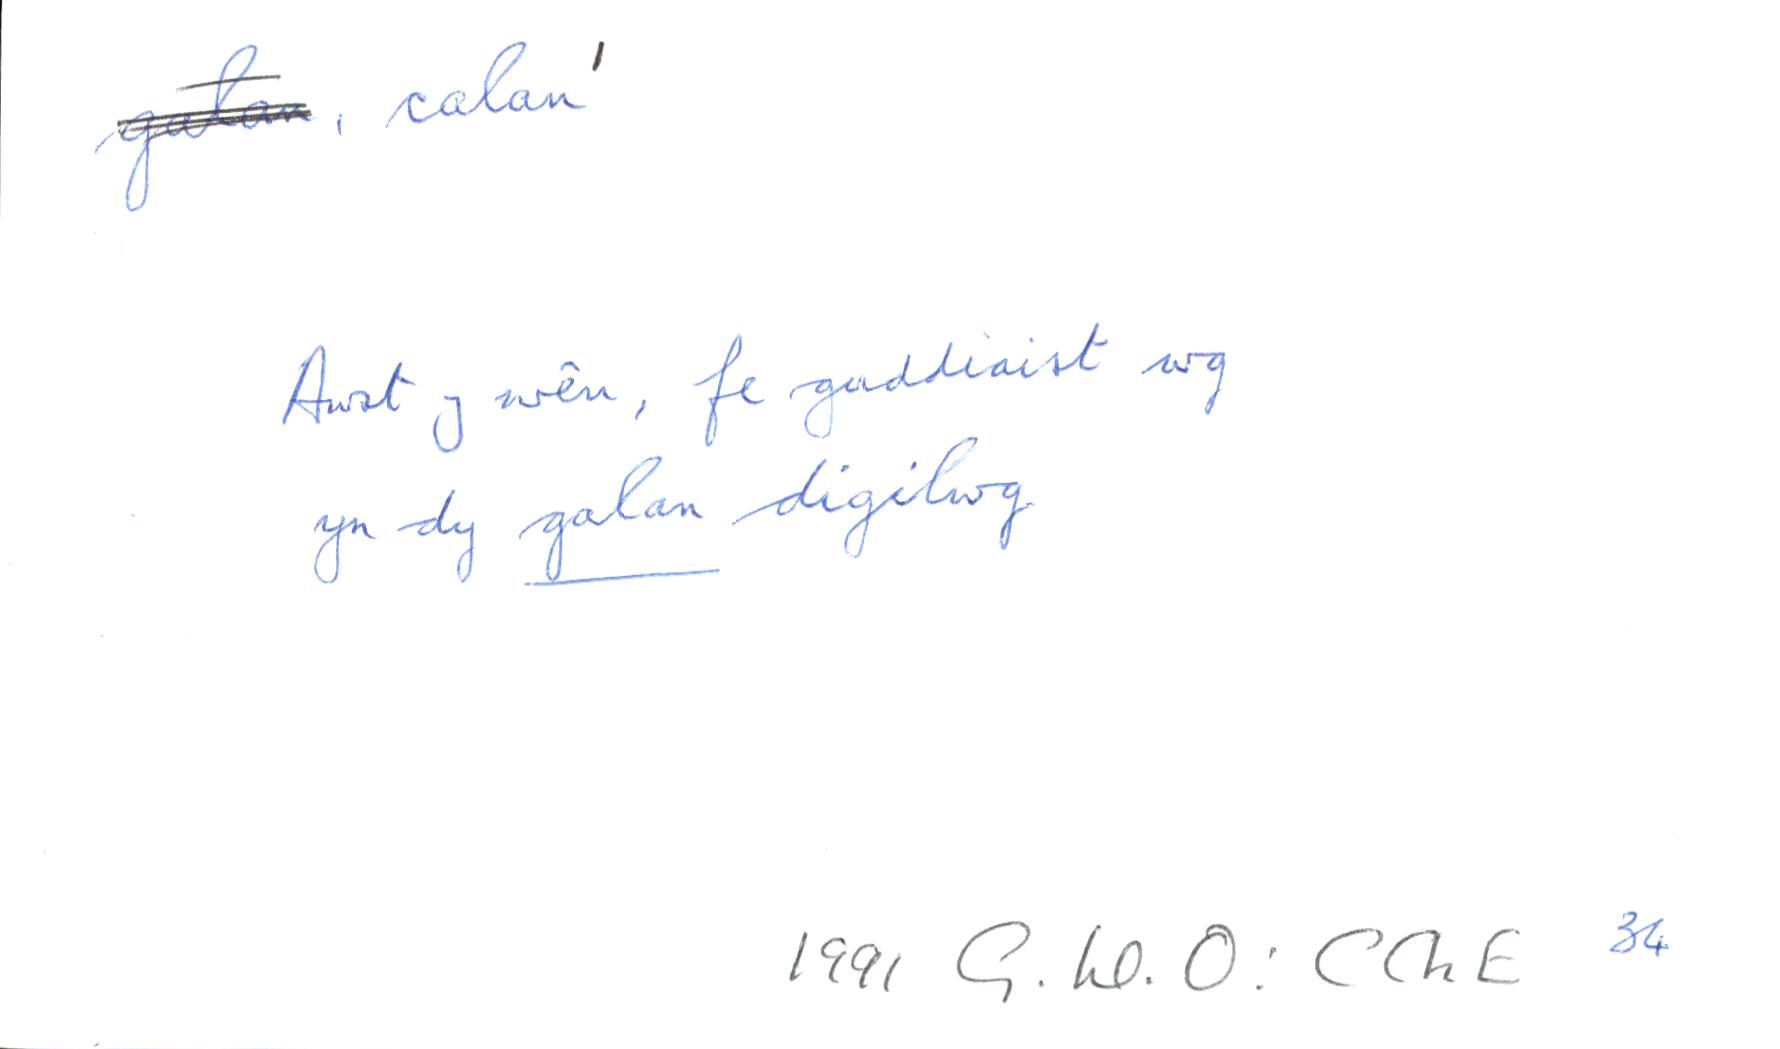 galan, calan'
Awst y wên, fe guddiaist wg
yn dy galan digilwg
1991 G.W.O: CChE 34